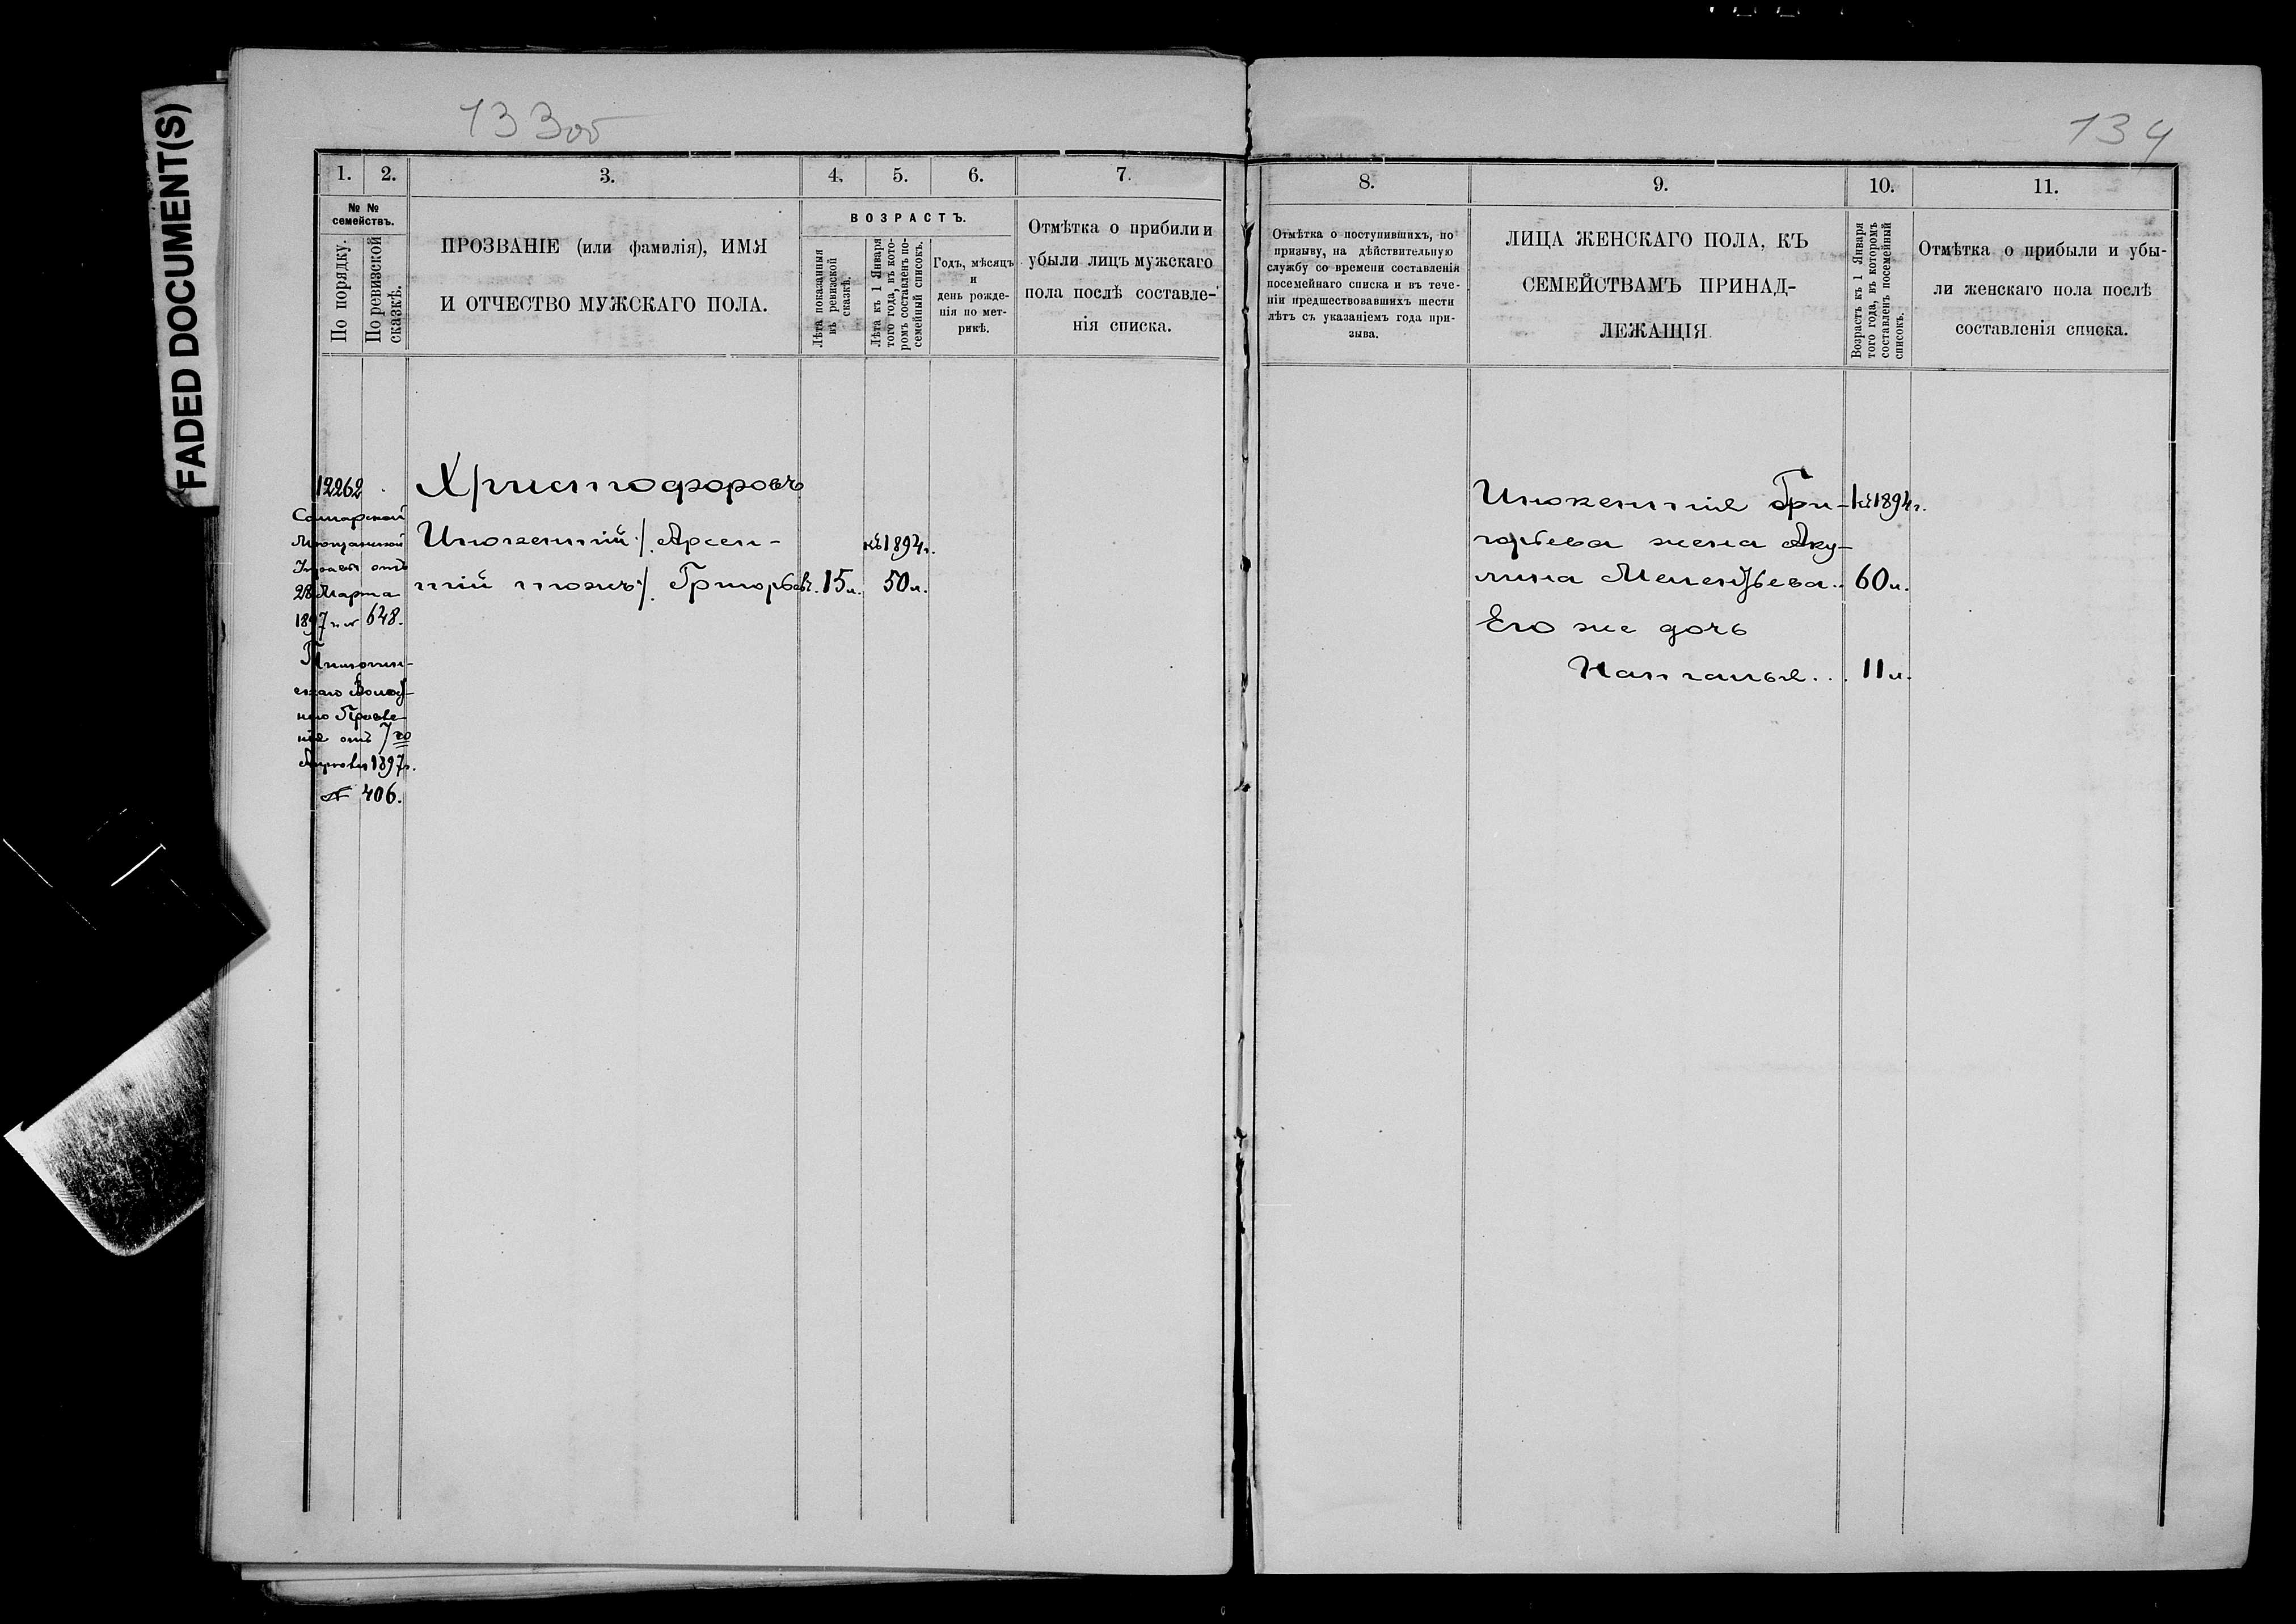 FADED DOCUMENT(S)
133об
1.
2.
3.
4.
5.
6.
7.
№ №
семействъ.
По порядку.
По ревизской
сказкѣ.
ПРОЗВАНІЕ (или фамилія), ИМЯ
И ОТЧЕСТВО МУЖСКАГО ПОЛА.
ВОЗРАСТЪ.
Лѣта показанныя
въ ревизской
сказкѣ.
Лѣта къ 1 Января
того года, въ кото-
ромъ составленъ по-
семейный списокъ.
Годъ, мѣсяцъ
и
день рожде-
нія по мет-
рикѣ.
Отмѣтка о прибили и
убыли лицъ мужскаго
пола послѣ составле-
нія списка.
12262
Самарской
Мѣщанской
Управы отъ
28 Марта
1897 г. № 648.
Волост-
наго Правле-
нія отъ 7го
1897 г.
№ 406.
Христофоровъ
Инокентій /. Арсен-
тій тожъ/. Григорьевъ. 15 л.
къ 1894 г.
50 л.
134
8.
9.
10.
11.
Отмѣтка о поступившихъ, по
призыву, на дѣйствительную
службу со времени составленія
посемейнаго списка и въ тече-
ніи предшествовавшихъ шести
лѣтъ съ указаніемъ года при-
зыва.
ЛИЦА ЖЕНСКАГО ПОЛА, КЪ
СЕМЕЙСТВАМЪ ПРИНАД-
ЛЕЖАЩІЯ
Возрастъ къ 1 Января
того года, въ которомъ
составленъ посемейный
списокъ.
Отмѣтка о прибыли и убы-
ли женскаго пола послѣ
составленія списка.
Инокентія Гри-
къ 1894 г.
горьева жена Аку-
лина Мелентьева.. 60 л.
Его же дочь
Наталья... 11 л.